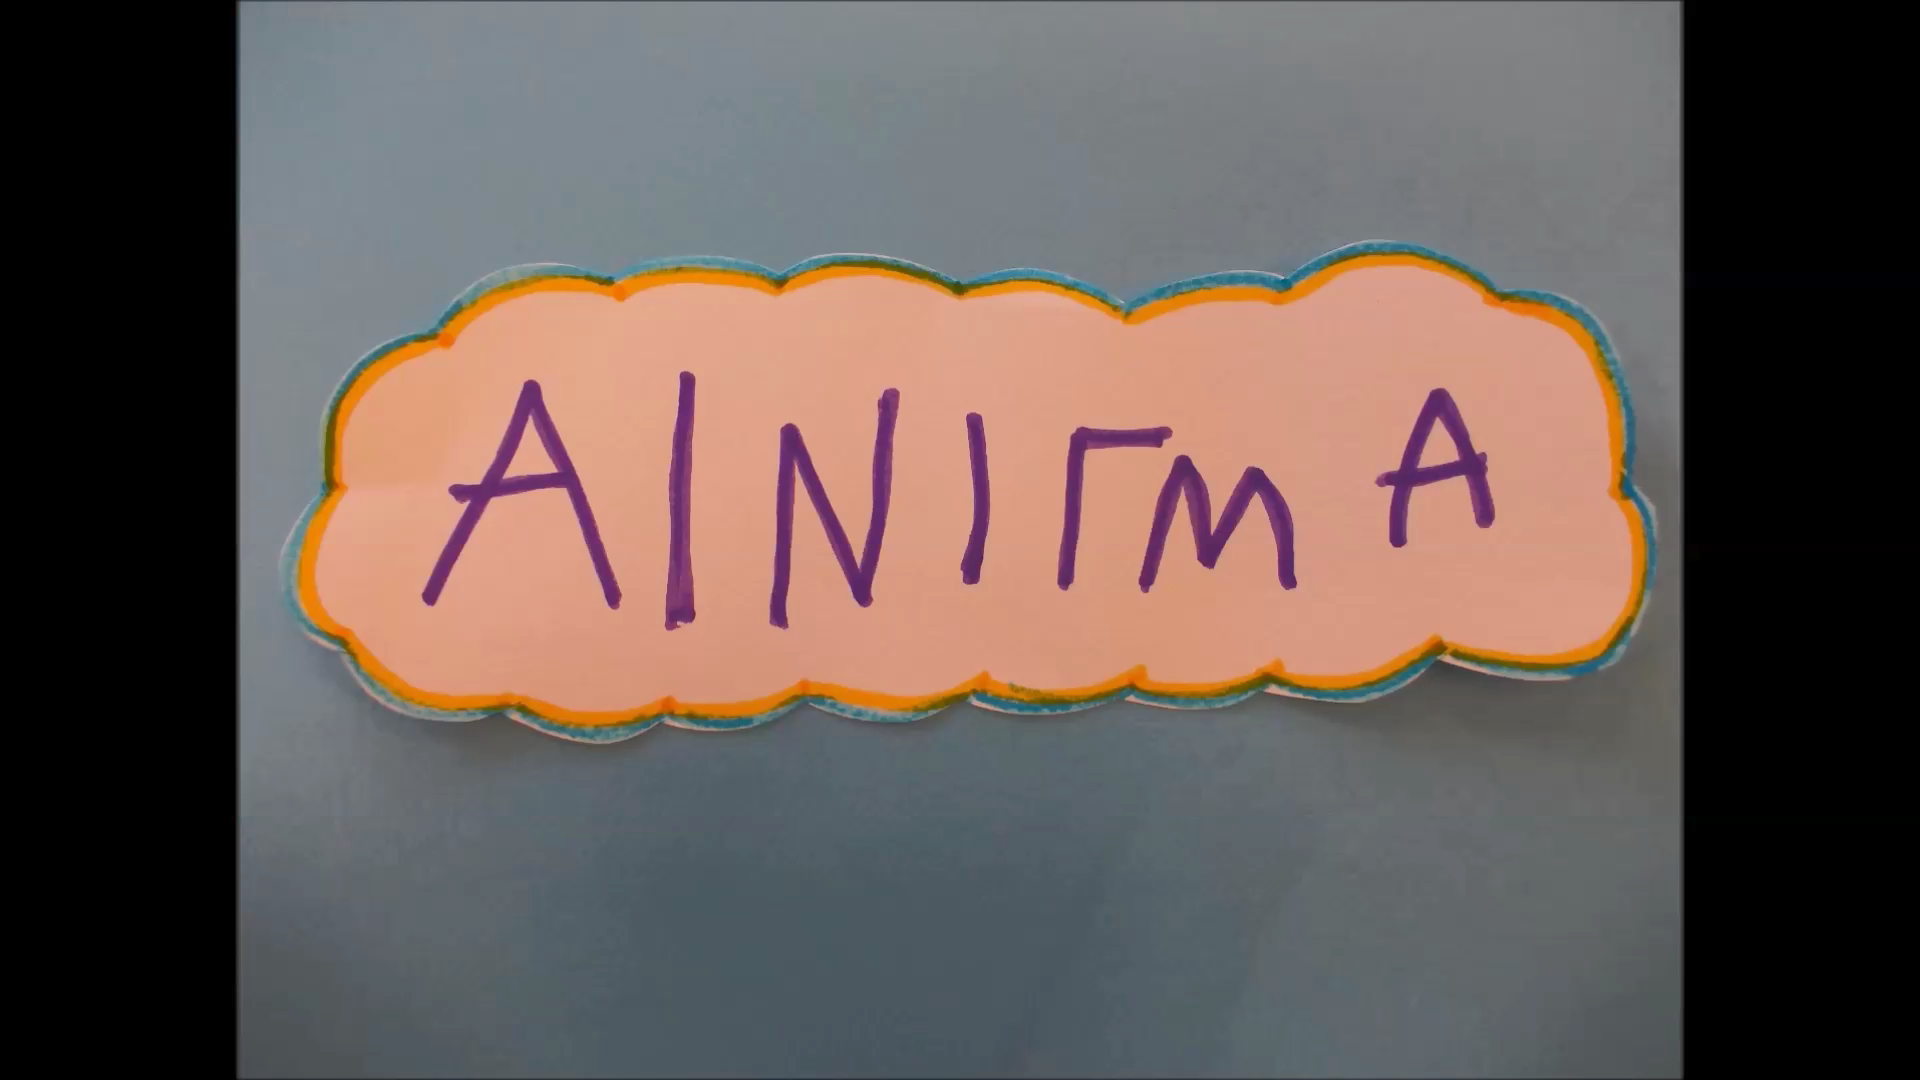 ΑΙΝΙΓΜΑ